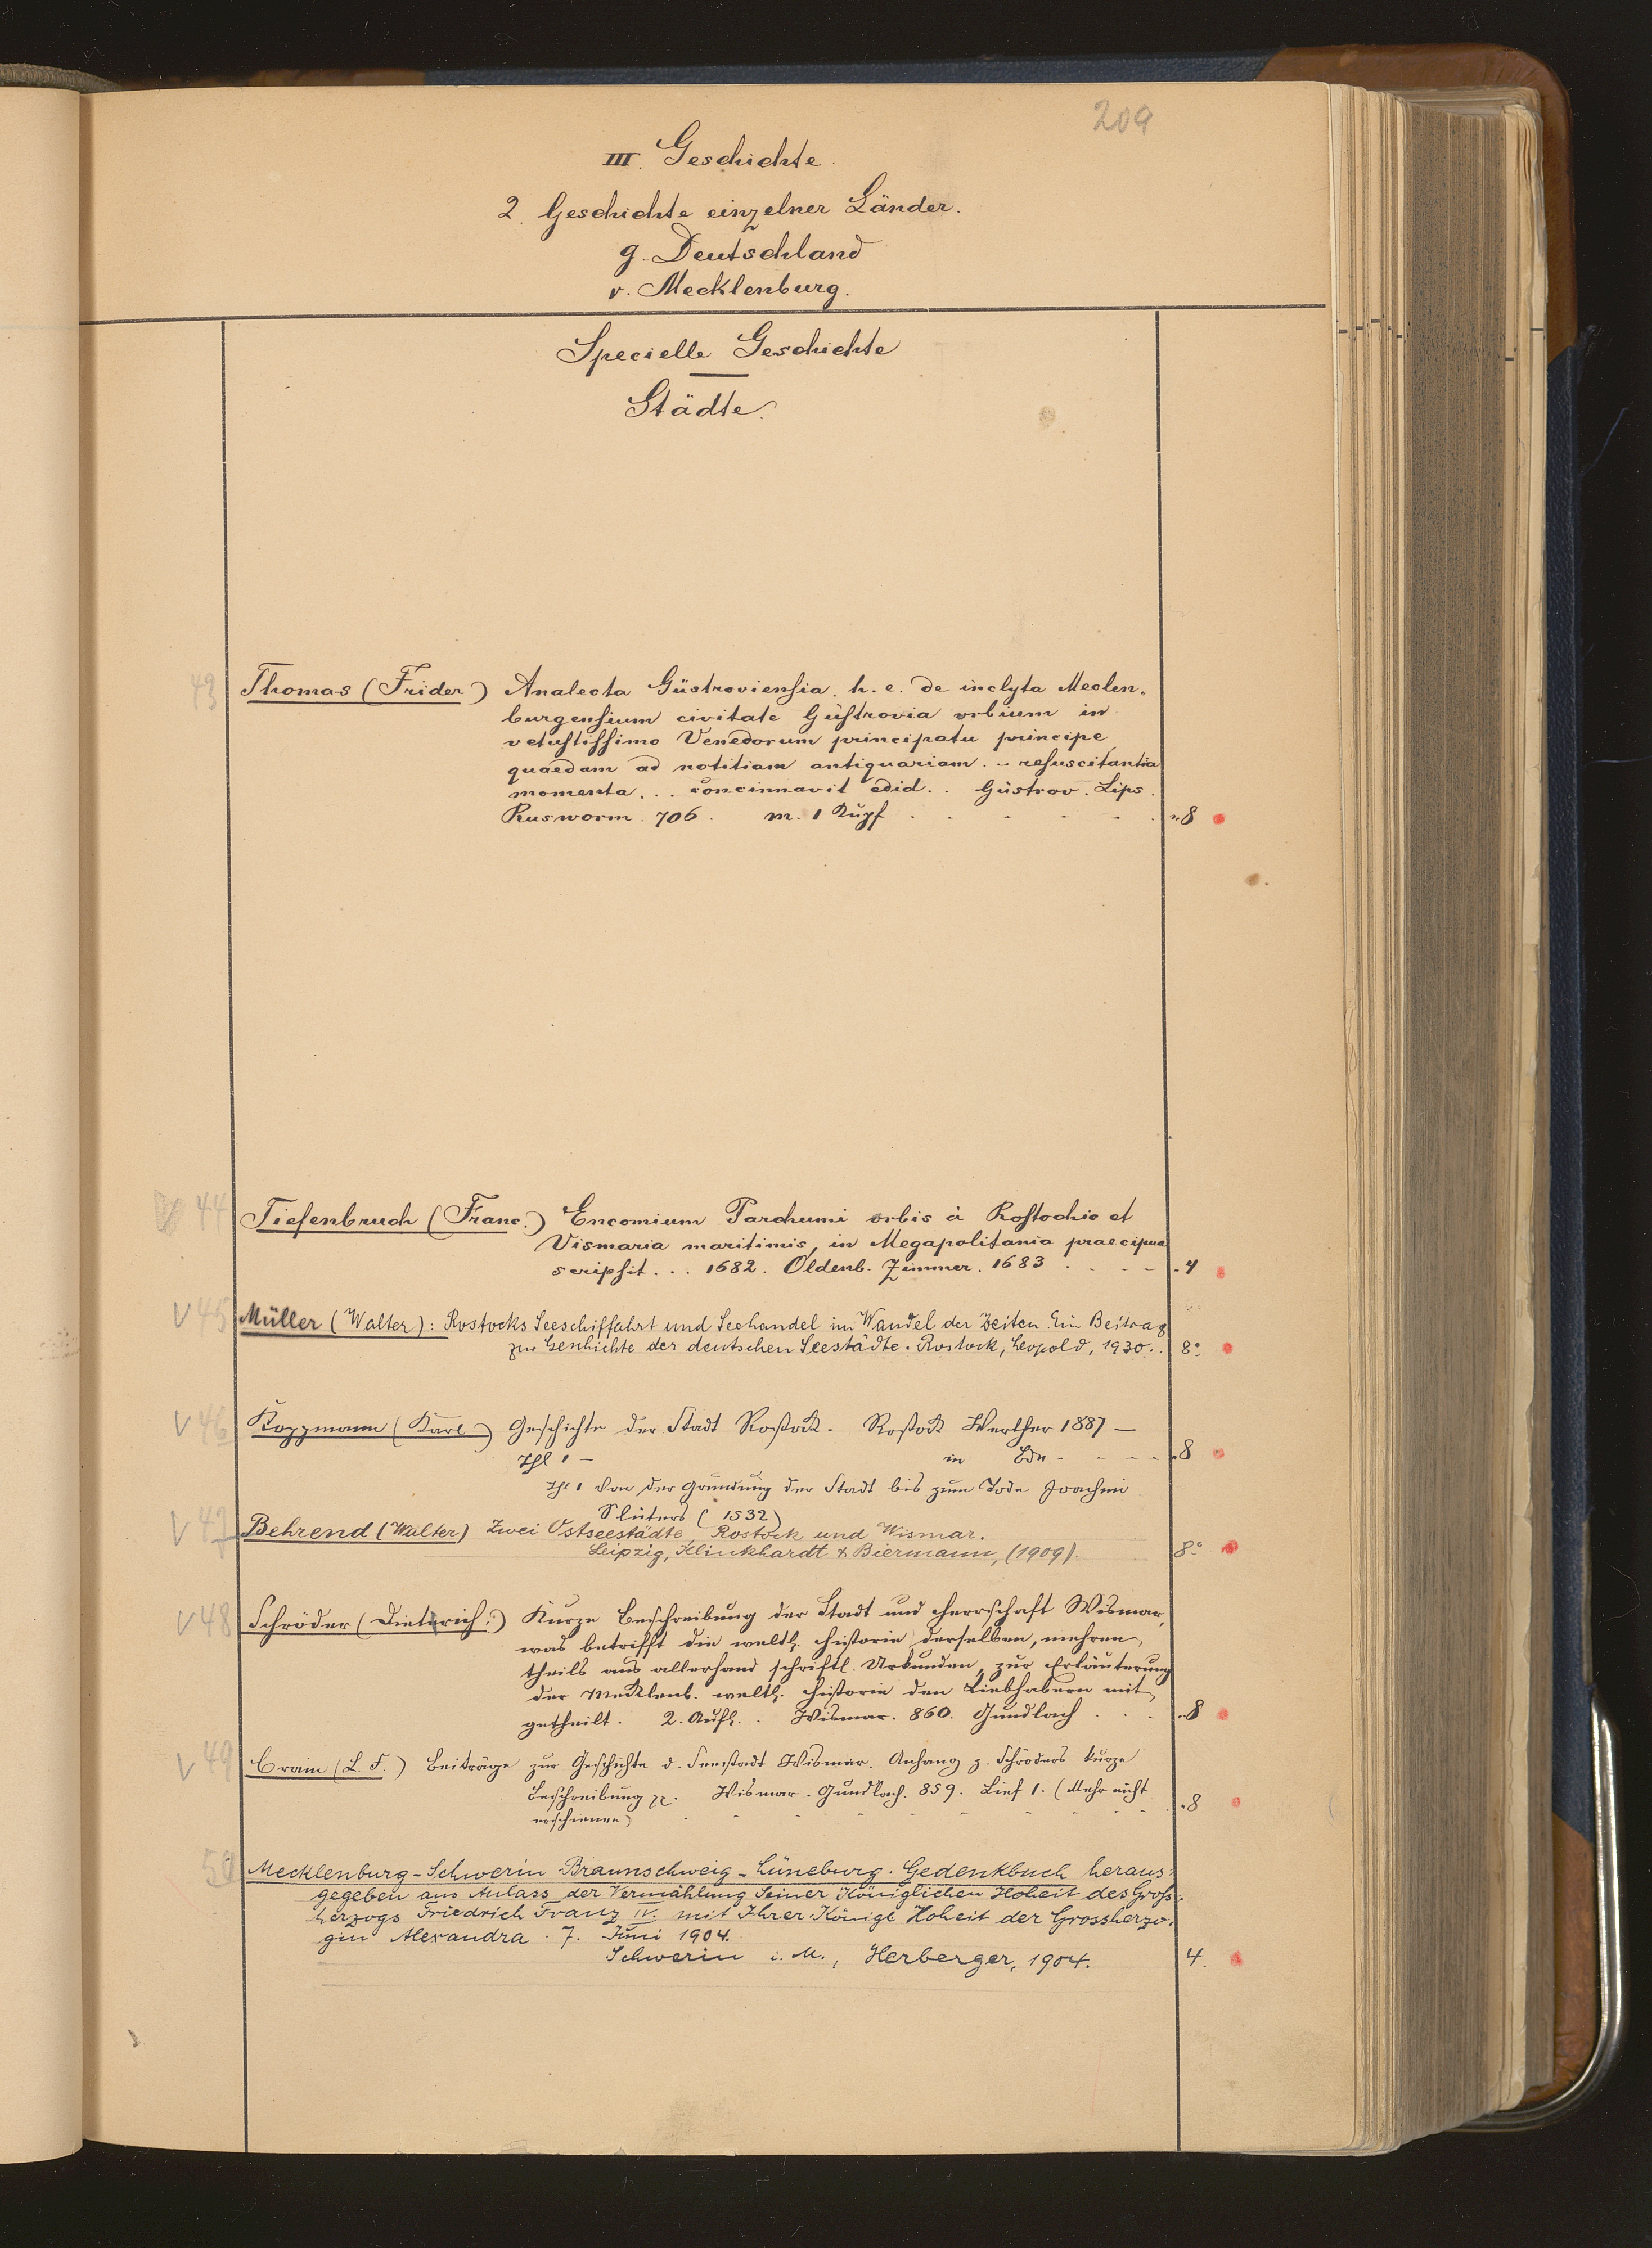 209
III. Geschichte.
2. Geschichte einzelner Länder.
g. Deutschland
v. Mecklenburg.
Specielle Geschichte
Städte.
43 Thomas (Frider) Analecta Güstroviensia. h. e. de inclyta Meclen-
burgensium civitate Güstrovia urbium in
vetustissimo Venedorum principatu principe
quaedam ad notitiam antiquariam .. resuscitantia
momenta ... concinnavit edid.. Güstrov. Lips.
Rusworm. 706. m. 1 Kupf . . . . . . 8
44 Tiefenbruch (Franc.) Encomium Parchumi orbis à Rostochio et
Vismaria maritimis, in Megapolitania praecipua
scripsit... 1682. Oldenb. Zimmer. 1683 . . . . 4
V 45 Müller (Walter): Rostocks Seeschiffahrt und Seehandel im Wandel der Zeiten. Ein Beitrag
zur Geschichte der deutschen Seestädte. Rostock, Leopold, 1930.. 8°
V 46 Koppmann (Karl) Geschichte der Stadt Rostock. Rostock Werther 1887 —
Thl 1 — in Bdn - - - - 8
Thl 1 Von der Gründung der Stadt bis zum Tode Joachim
Slüters (1532)
V 47 Behrend (Walter) Zwei Ostseestädte Rostock und Wismar.
Leipzig, Klinkhardt & Biermann, (1909). 8°
V 48 Schröder (Dieterich:) Kurze Beschreibung der Stadt und Herrschaft Wismar,
was betrifft die weltl. Historie derselben, mehren-
theils aus allerhand schriftl. Urkunden, zur Erläuterung
der Mecklenb. weltl. Historie den Liebhabern mit-
getheilt. 2. Aufl.. Wismar. 860. Gundlach . . . 8
V 49 Crain (L. F.) Beiträge zur Geschichte d. Seestadt Wismar. Anhang z. Schröders kurze
Beschreibung pp. Wismar. Gundlach. 859. Lief 1. (Mehr nicht
erschienen) . - - - - - - - - 8
50 Mecklenburg-Schwerin Braunschweig-Lüneburg. Gedenkbuch heraus-
gegeben aus Anlass der Vermählung Seiner Königlichen Hoheit des Gross-
herzogs Friedrich Franz IV. mit Ihrer Königl Hoheit der Grossherzo-
gin Alexandra. 7. Juni 1904.
Schwerin i. M., Herberger, 1904. 4.